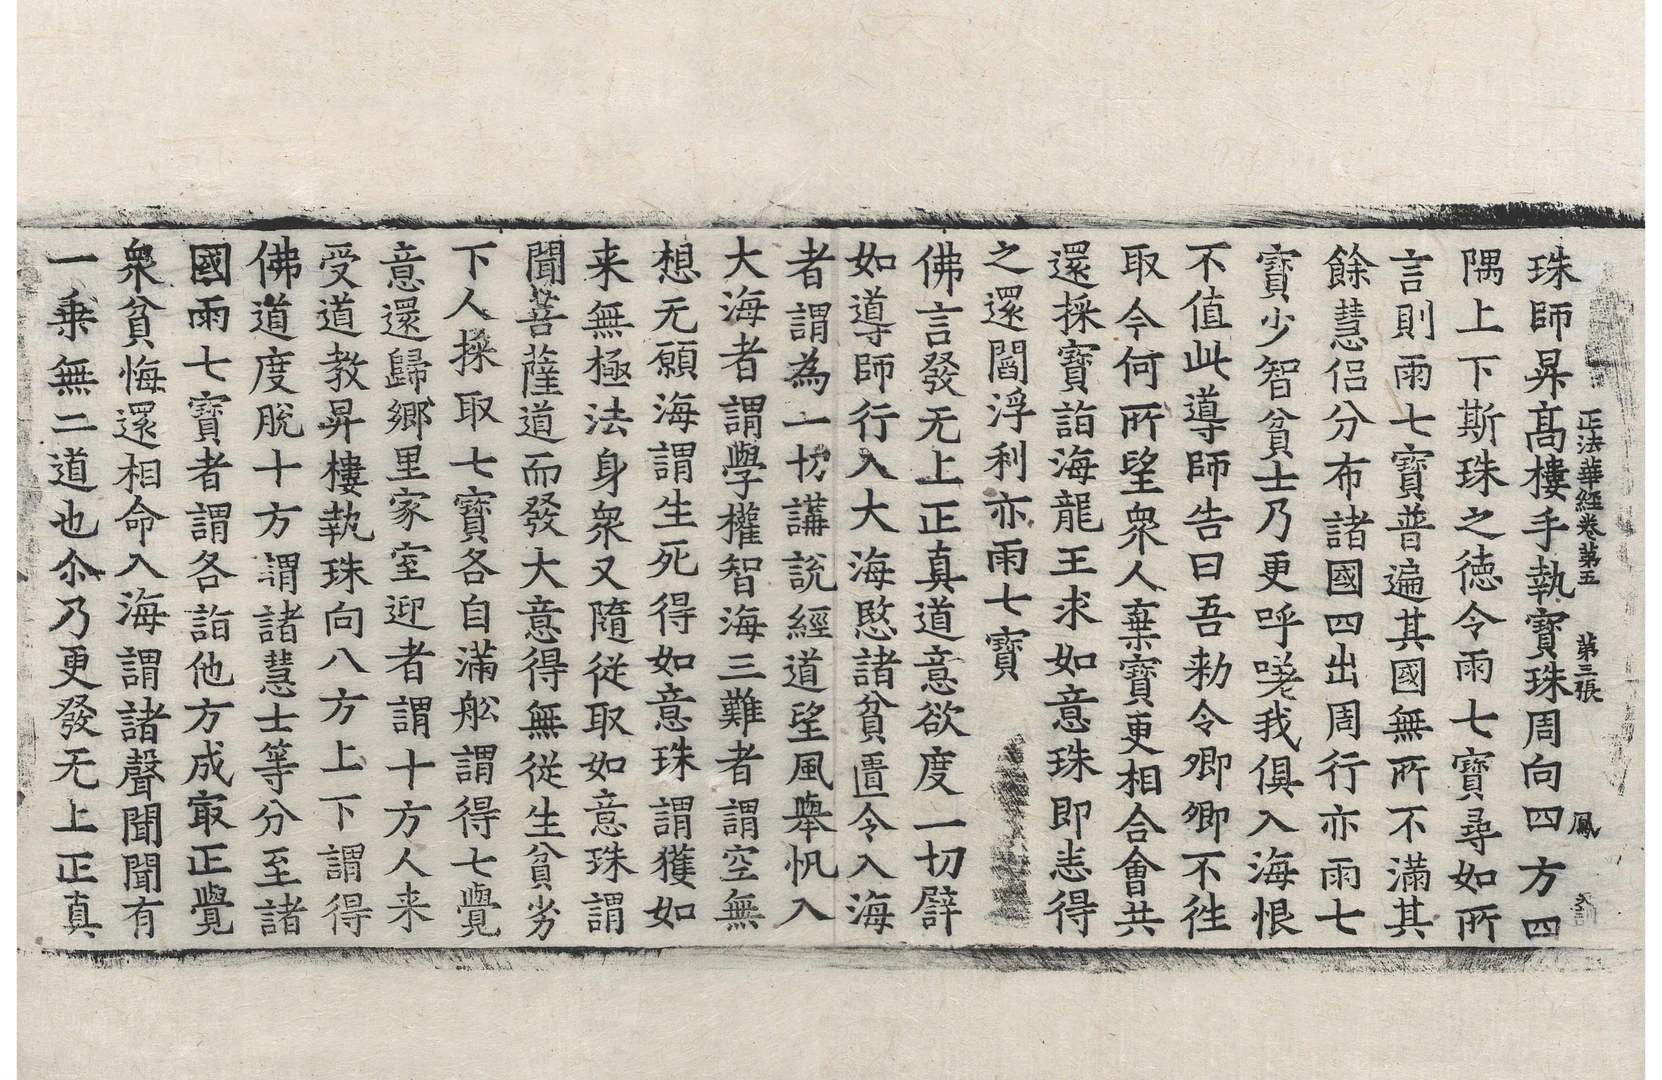 正法華經卷第五 第三張 鳳
珠師昇高樓手執寶珠周向四方四
隅上下斯珠之徳令雨七寶尋如所
言則雨七寶普遍其國無所不滿其
餘慧侣分布諸國四出周行亦雨七
寶少智貧士乃更呼嗟我俱入海恨
不值此導師告曰吾勑令卿卿不徃
取今何所望衆人棄寶更相合會共
還採寶詣海龍王求如意珠即志得
之還閻浮利亦雨七寶
佛言發无上正真道意欲度一切譬
如導師行入大海愍諸貧匱令入海
者謂為一切講說經道望風舉帆入
大海者謂學權智海三難者謂空無
想无願海謂生死得如意珠謂獲如
来無極法身衆又隨従取如意珠謂
聞菩薩道而發大意得無從生貧劣
下人採取七寶各自滿舩謂得七覺
意還歸鄉里家室迎者謂十方人来
受道教昇樓執珠向八方上下謂得
佛道度脫十方謂諸慧士等分至諸
國雨七寶者謂各詣他方成㝡正覺
衆貧悔還相命入海謂諸聲聞聞有
一乗無二道也尒乃更發无上正真